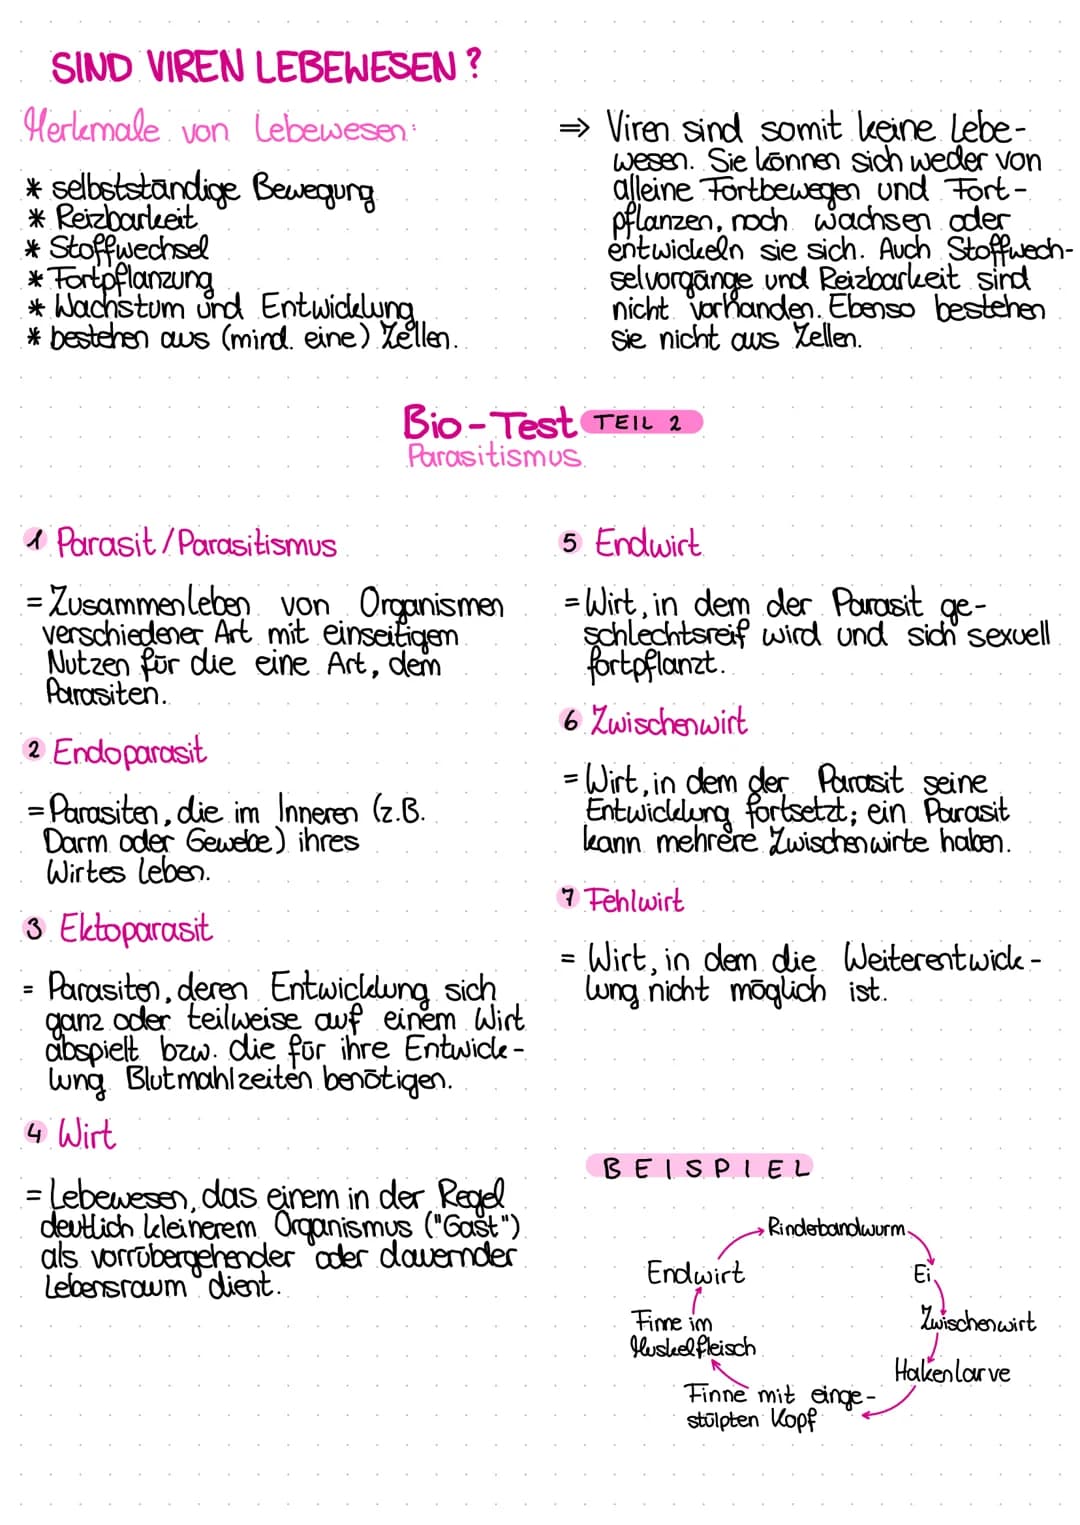 SIND VIREN LEBEWESEN?
Merkmale von Lebewesen:
* selbstständige Bewegung
* Reizbarkeit
* Stoffwechsel
* Fortpflanzung
* Wachstum und Entwicklung
* bestehen aus (mind. eine) Zellen.
⇒ Viren sind somit keine Lebe-
wesen. Sie können sich weder von
alleine Fortbewegen und Fort-
pflanzen, noch wachsen oder
entwickeln sie sich. Auch Stoffwech-
selvorgänge und Reizbarkeit sind
nicht vorhanden. Ebenso bestehen
sie nicht aus Zellen.
Bio-Test TEIL 2
Parasitismus
1 Parasit/Parasitismus
= Zusammenleben von Organismen
verschiedener Art mit einseitigem
Nutzen für die eine Art, dem
Parasiten.
2 Endoparasit
= Parasiten, die im Inneren (z.B.
Darm oder Gewebe) ihres
Wirtes leben.
3 Ektoparasit
= Parasiten, deren Entwicklung sich
ganz oder teilweise auf einem Wirt
abspielt bzw. die für ihre Entwick-
lung Blutmahlzeiten benötigen.
4 Wirt
= Lebewesen, das einem in der Regel
deutlich kleinerem Organismus ("Gast")
als vorrübergehender oder dauernder
Lebensraum dient.
5 Endwirt
= Wirt, in dem der Parasit ge-
schlechtsreif wird und sich sexuell
fortpflanzt.
6 Zwischenwirt
= Wirt, in dem der Parasit seine
Entwicklung fortsetzt; ein Parasit
kann mehrere Zwischenwirte haben.
7 Fehlwirt
= Wirt, in dem die Weiterentwick-
lung nicht möglich ist.
BEISPIEL
Rinderbandwurm
Ei
Zwischenwirt
Hakenlarve
Finne mit einge-
stülpten Kopf
Finne im
Muskelfleisch
Endwirt